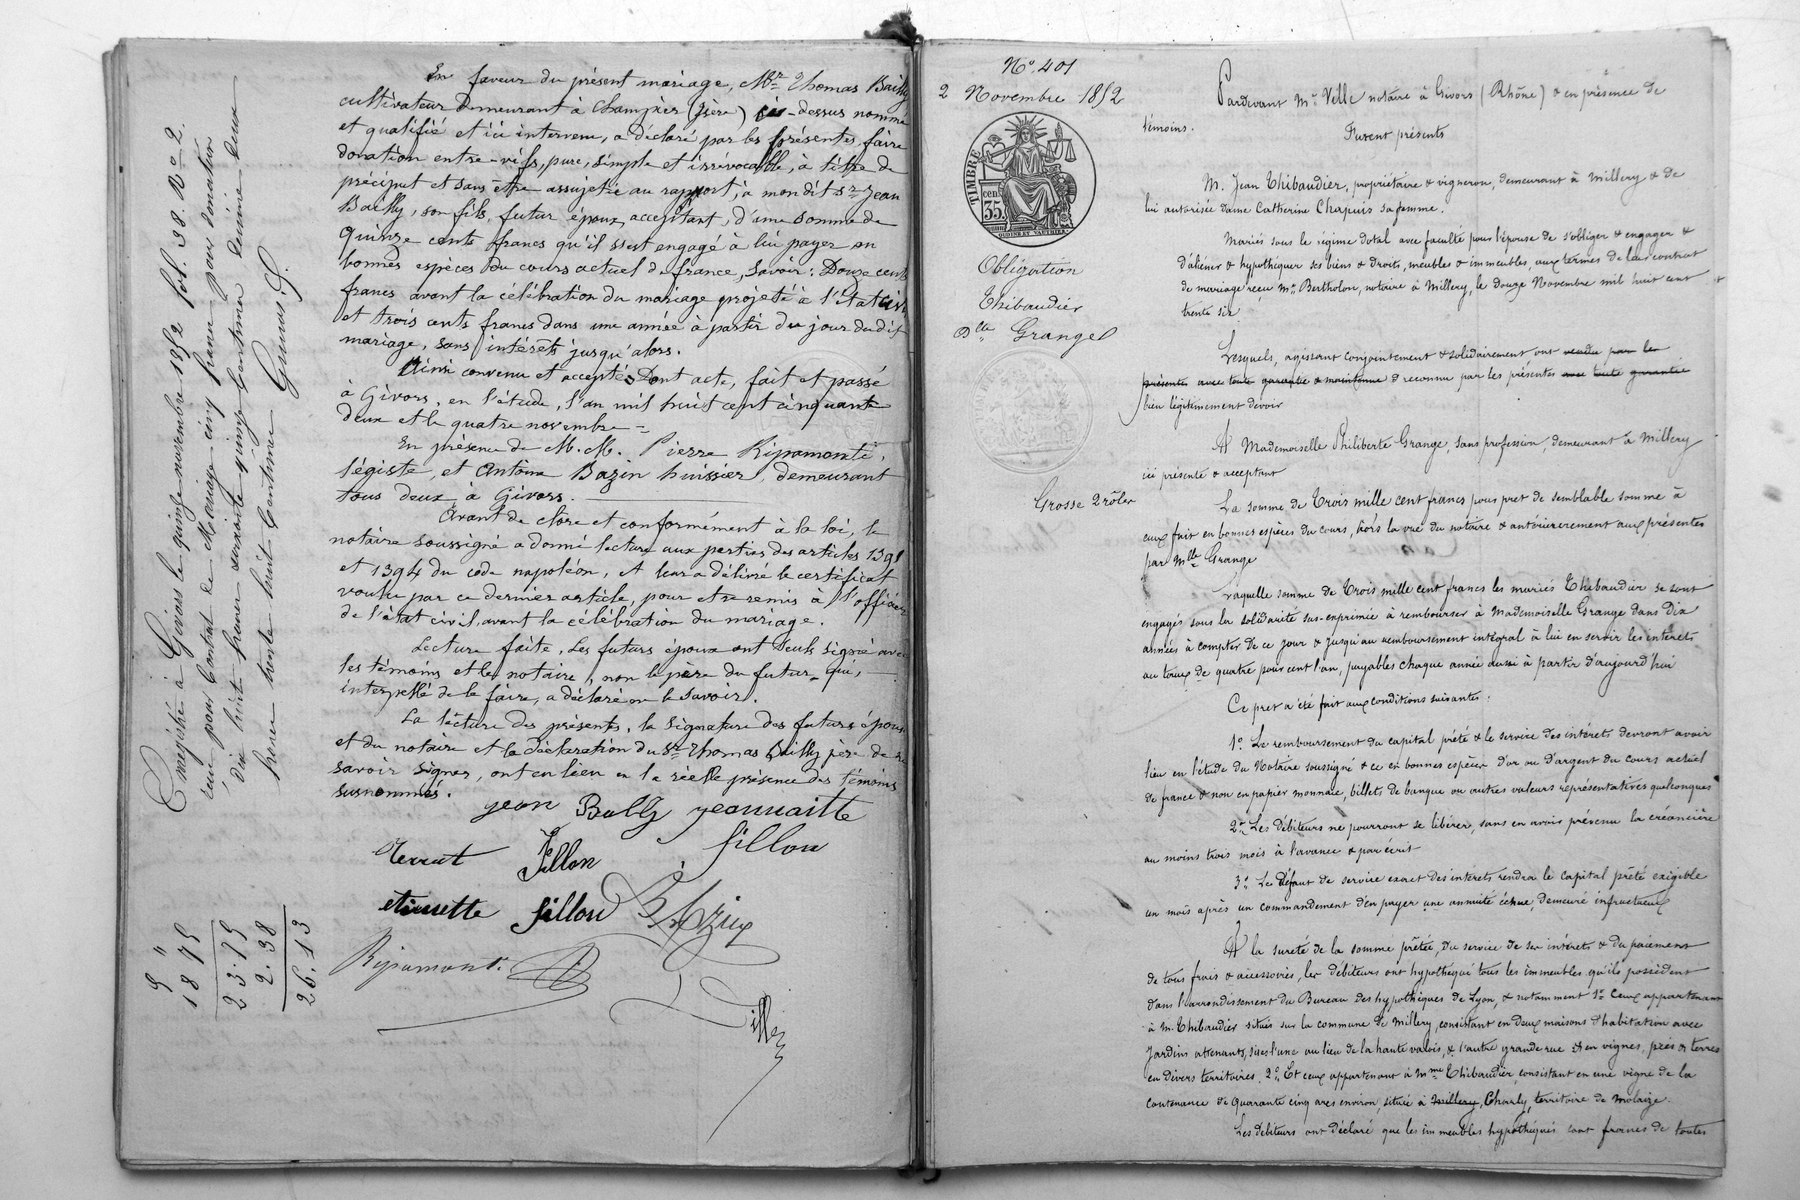 En faveur du présent mariage, Mr. Thomas Bailly
cultivateur demeurant à Champier (Isère) ci-dessus nommé
et qualifié et ici intervenu, a déclaré par les présentes, faire
donation entre-vifs, pure, simple et irrévocable, à titre de
préciput et sans être assujetié au rapport, à mondit sr. Jean
Bailly, son fils, futur époux acceptant, d'une somme de
Quinze cents francs qu'il s'est engagé à lui payer en
bonnes espèces du cours actuel de france, savoir: Douze cents
francs avant la célébration du mariage projeté à l'Etat civil
et trois cents francs dans une année à partir du jour dudit
mariage, sans intérêts jusqu'alors.
Ainsi convenu et accepté. Dont acte, fait et passé
à Givors, en l'étude, l'an mil huit cent cinquante
deux et le quatre novembre =
En présence de M.M. Pierre Ripamonti,
légiste, et Antoine Bazin huissier, demeurant
tous deux à Givors.
Avant de clore et conformément à la loi, le
notaire soussigné a donné lecture aux parties des articles 1391
et 1394 du code napoléon, et leur a délivré le certificat
voulu par ce dernier article, pour être remis à l'officier
de l'état civil, avant la célébration du mariage.
Lecture faite, les futurs époux ont seuls signé avec
les témoins et le notaire, non le père du futur, qui,
interpellé de le faire, a déclaré ne le savoir.
La lecture des présentes, la signature des futurs époux
et du notaire et la déclaration du Sr. Thomas Bailly père de ne
savoir signer, ont eu lieu en la réelle présence des témoins
susnommés.
jean Bally jeannaitte
fillon
Terrat fillon
etinette fillon Bazin
Ripamonti
Ville
Enregistré à Givors le quinze novembre 1852 fol. 38. Ro c. 2.
reçu pour Contrat de Mariage cinq francs, pour donation
dix huit francs soixante quinze centimes, décime deux
francs trente huit Centimes
5 "
18 75
23.75
2.38
26.13
No. 401
2 Novembre 1852
TIMBRE
35 cen.
Obligation
Thibaudier
Dlle Grange
Grosse 2 rôles
Pardevant Me. Ville notaire à Givors (Rhône) & en présence de
témoins.
Furent présents
M. Jean Thibaudier, propriétaire & vigneron, demeurant à Millery & de
lui autorisée dame Catherine Chapuis sa femme.
Mariés sous le régime dotal avec faculté pour l'épouse de s'obliger & engager &
d'aliéner & hypothéquer ses biens & droits, meubles & immeubles, aux termes de leur contrat
de mariage reçu Me. Bertholon, notaire à Millery, le douze Novembre mil huit cent
trente six
Lesquels, agissant conjointement & solidairement, ont vendu par les
présentes avec toute garantie & maintenue & reconnu par les présentes avec toute garantie
bien légitimement devoir
A Mademoiselle Philiberte Grange, sans profession, demeurant à Millery
ici présente & acceptant
La somme de Trois mille cent francs pour pret de semblable somme à
eux fait en bonnes espèces du cours, hors la vue du notaire & antérieurement aux présentes
par Mlle Grange
Laquelle somme de Trois mille cent francs les mariés Thibaudier se sont
engagés sous la solidarité sus-exprimée à rembourser à Mademoiselle Grange dans Dix
années à compter de ce jour & jusqu'au remboursement intégral à lui en servir les intérets
au taux de quatre pour cent l'an, payables chaque année aussi à partir d'aujourd'hui
Ce pret a été fait aux conditions suivantes:
1o. Le remboursement du capital prêté & le service des intérets devront avoir
lieu en l'étude du Notaire soussigné & ce en bonnes espèces d'or ou d'argent du cours actuel
de france & non en papier monnaie, billets de banque ou autres valeurs représentatives quelconques
2o. Les débiteurs ne pourront se libérer, sans en avoir prévenu la créancière
au moins trois mois à l'avance & par écrit
3o. Le défaut de service exact des intérets, rendra le capital prêté exigible
un mois après un commandement d'en payer une annuité échue, demeuré infructueux
A la sureté de la somme prêtée, du service de ses intérets & du paiement
de tous frais & accessoires, les débiteurs ont hypothéqué tous les immeubles qu'ils possèdent
dans l'arrondissement du Bureau des hypothèques de Lyon, & notamment 1o. Ceux appartenant
à M. Thibaudier situés sur la commune de Millery, consistant en deux maisons d'habitation avec
Jardins attenants, sises l'une au lieu de la haute valois, & l'autre grande rue & en vignes, prés & terres
en divers territoires. 2o. Et ceux appartenant à Mme Thibaudier, consistant en une vigne de la
contenance de Quarante cinq ares environ, située à Millery, Charly, territoire de Molaize.
Les débiteurs ont déclaré que les immeubles hypothéqués sont francs de toutes